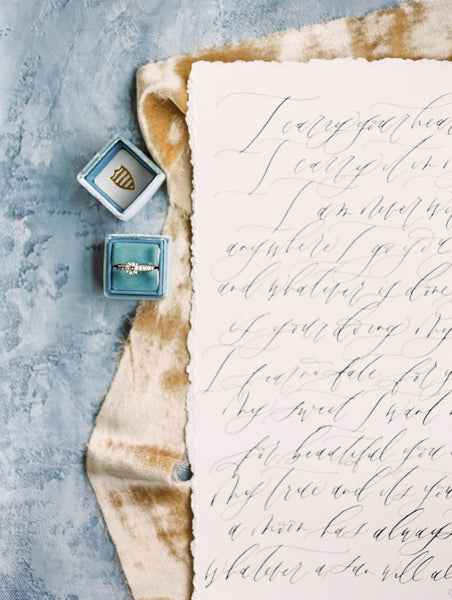 I carry your hear
I carry it in m
I am never wi
anywhere I go you
and whatever is done
is your doing My
I fear no fate for y
My sweet I want n
for beautiful you
My true and its you
a moon has always
whatever a sun will al